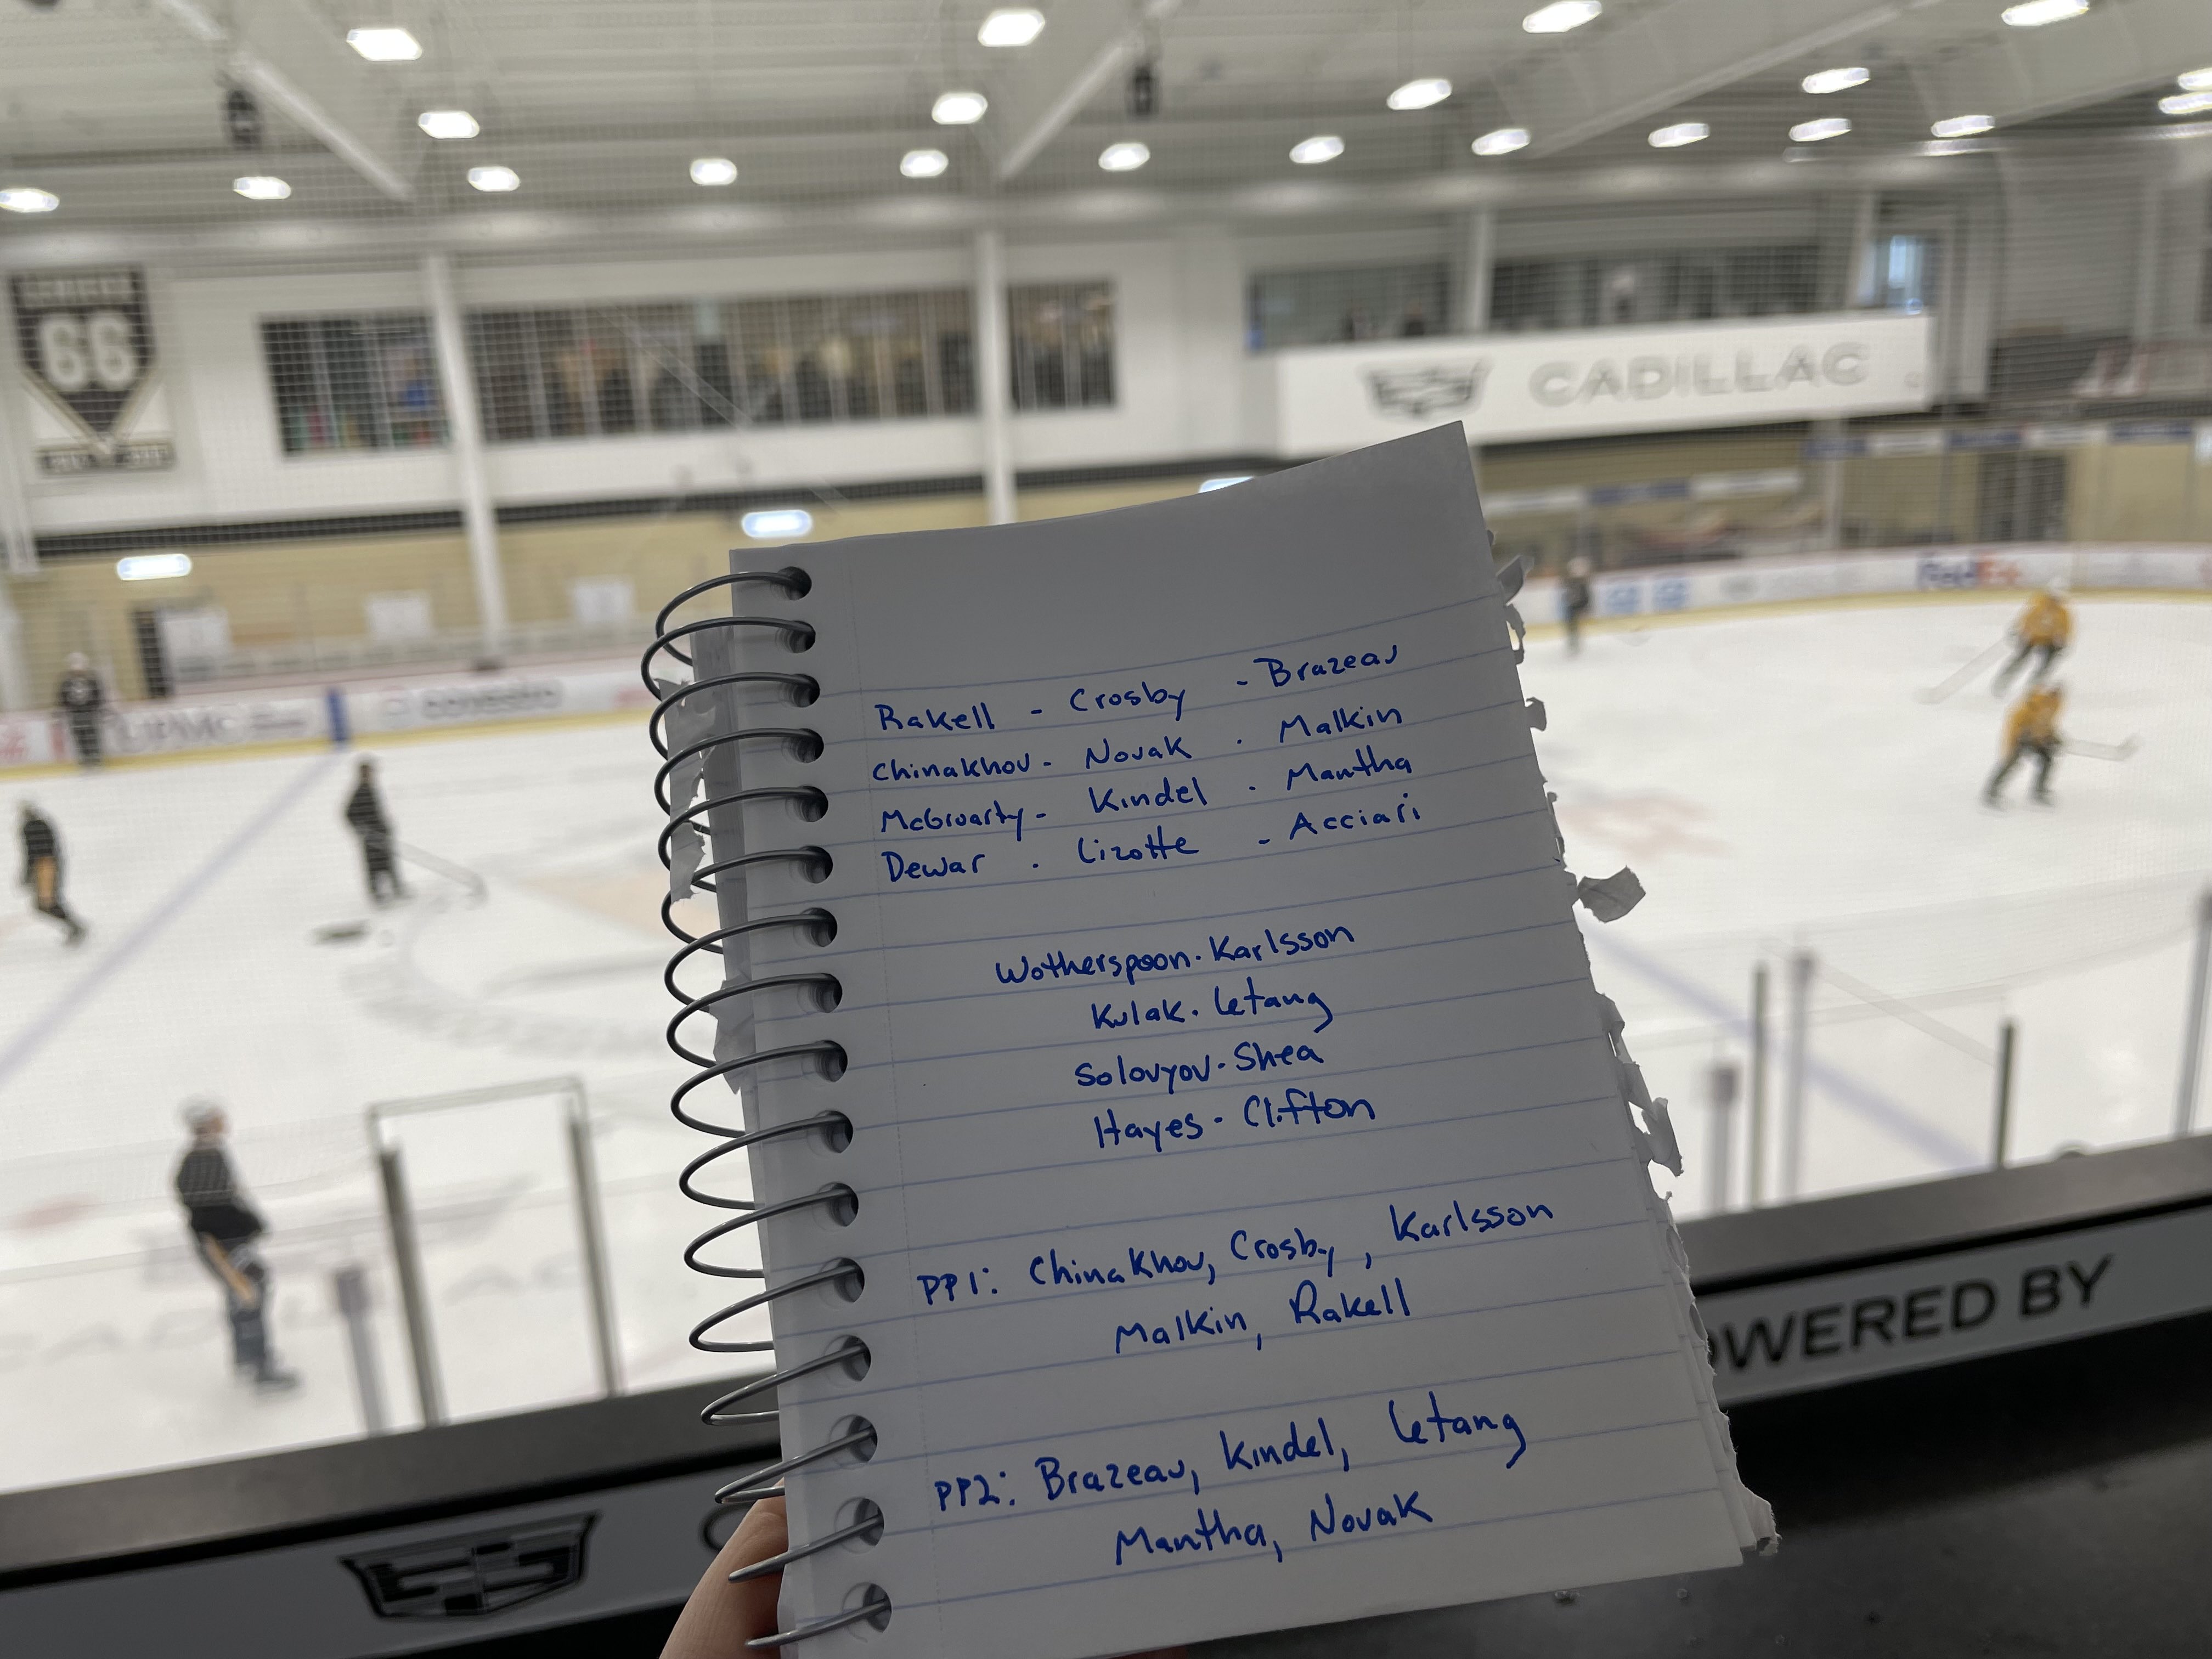 66
CADILLAC
FedEx
UPMC
covestro
Rakell - Crosby - Brazeau
Chinakhov - Novak - Malkin
McGroarty - Kindel - Mantha
Dewar - Lizotte - Acciari
Wotherspoon - Karlsson
Kulak - Letang
Solovyov - Shea
Hayes - Clifton
PP1: Chinakhov, Crosby, Karlsson
Malkin, Rakell
PP2: Brazeau, Kindel, Letang
Mantha, Novak
OWERED BY